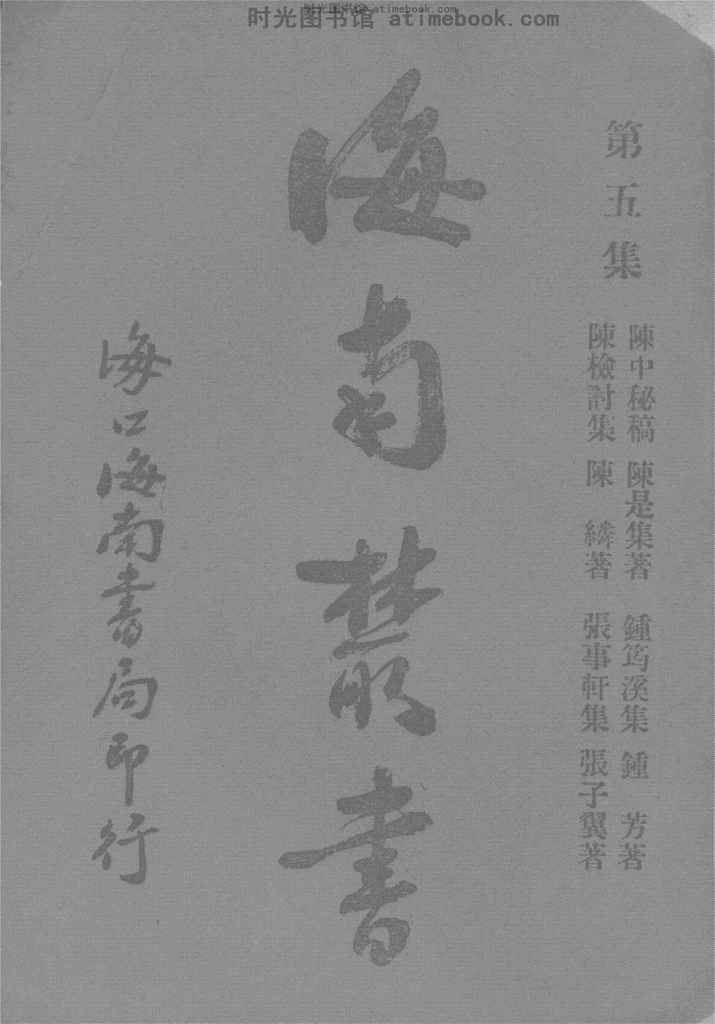 时光图书馆 atimebook.com
时光图书馆 atimebook.com
第五集
陳中秘稿 陳是集著 鍾筠溪集 鍾芳著
陳檢討集 陳繗著 張事軒集 張子翼著
海南叢書
海口海南書局印行